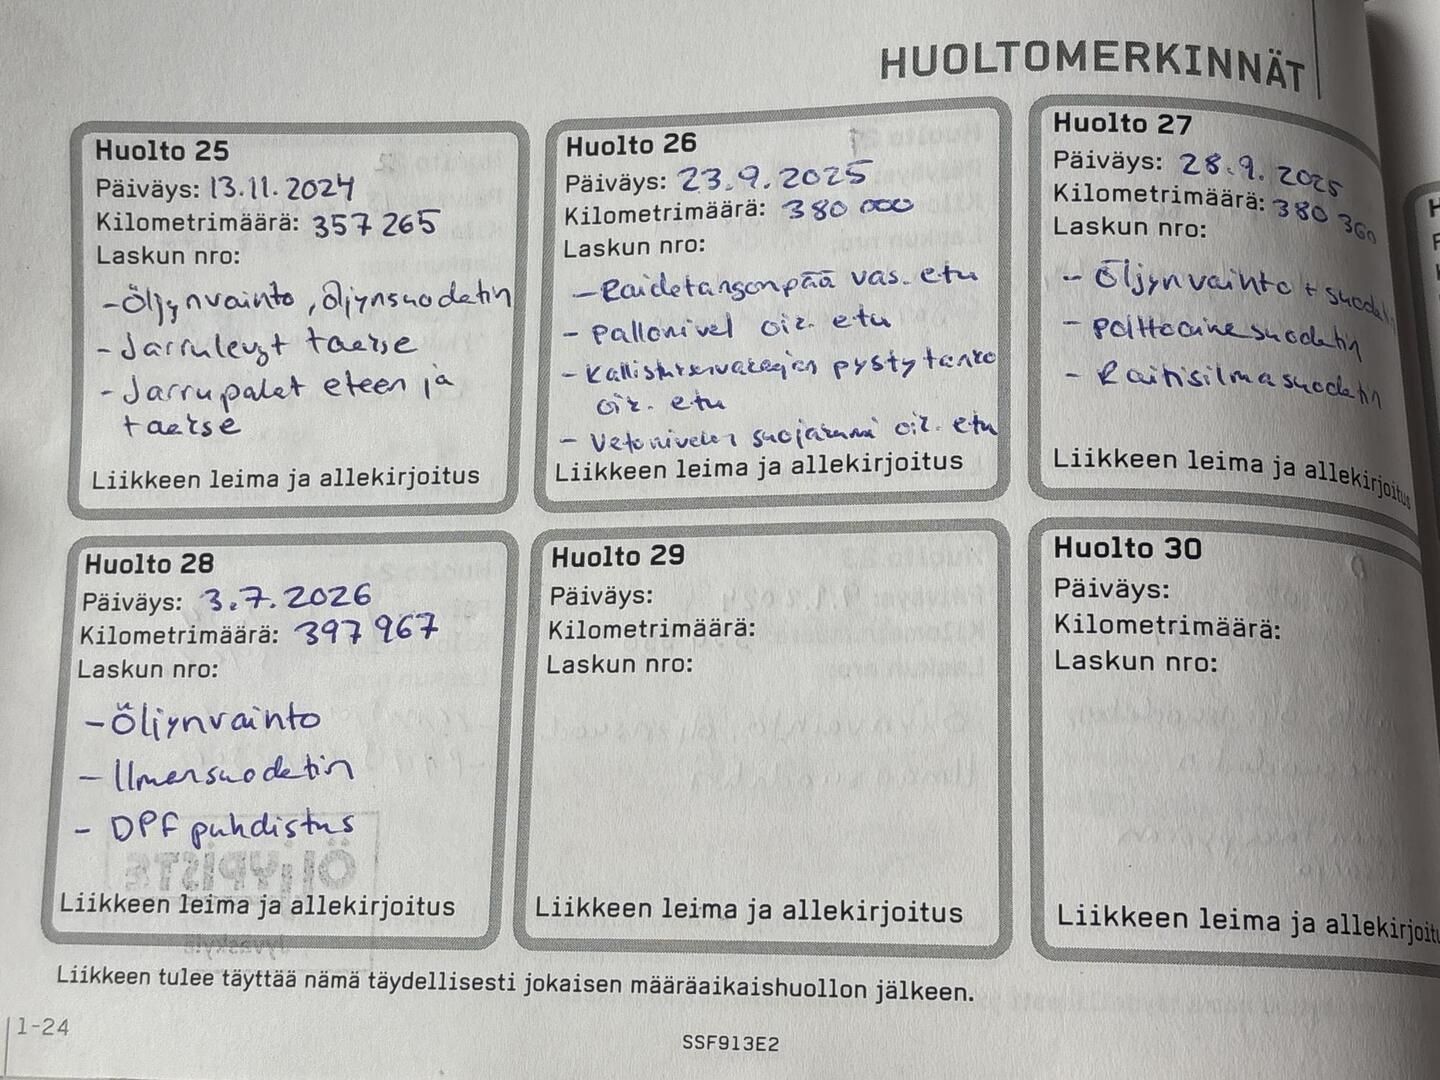 HUOLTOMERKINNÄT
Huolto 25
Päiväys: 13.11.2024
Kilometrimäärä: 357 265
Laskun nro:
- Öljynvainto, öljynsuodatin
- Jarrulevyt taakse
- Jarrupalat eteen ja
taakse
Liikkeen leima ja allekirjoitus
Huolto 26
Päiväys: 23.9.2025
Kilometrimäärä: 380 000
Laskun nro:
- Raidetangonpää vas. etu
- pallonivel oik. etu
- Kallistuksenvakaajan pystytanko
oik. etu
- Vetonivelen suojakumi oik. etu
Liikkeen leima ja allekirjoitus
Huolto 27
Päiväys: 28.9.2025
Kilometrimäärä: 380 360
Laskun nro:
- Öljynvainto + suodati
- polttoainesuodatin
- Raitisilmasuodatin
Liikkeen leima ja allekirjoitus
Huolto 28
Päiväys: 3.7.2026
Kilometrimäärä: 397 967
Laskun nro:
- Öljynvainto
- Ilmansuodatin
- DPF puhdistus
Liikkeen leima ja allekirjoitus
Huolto 29
Päiväys:
Kilometrimäärä:
Laskun nro:
Liikkeen leima ja allekirjoitus
Huolto 30
Päiväys:
Kilometrimäärä:
Laskun nro:
Liikkeen leima ja allekirjoitu
Liikkeen tulee täyttää nämä täydellisesti jokaisen määräaikaishuollon jälkeen.
1-24
SSF913E2